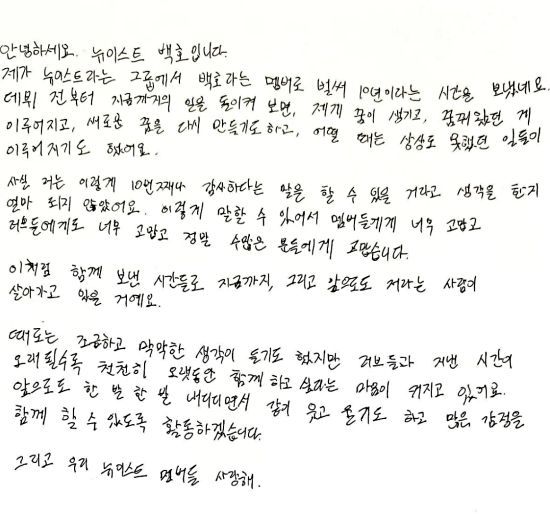 안녕하세요. 뉴이스트 백호입니다.
제가 뉴이스트라는 그룹에서 백호라는 멤버로 벌써 10년이라는 시간을 보냈네요.
데뷔 전부터 지금까지의 일을 돌이켜 보면, 제게 꿈이 생기고, 꿈꿔왔던 게
이루어지고, 새로운 꿈을 다시 만들기도하고, 어떨 때는 상상도 못했던 일들이
이루어지기도 했어요.
사실 저는 이렇게 10년째나 감사하다는 말을 할 수 있을 거라고 생각을 한지
얼마 되지 않았어요. 이렇게 말할 수 있어서 멤버들에게 너무 고맙고
러브들에게도 너무 고맙고 정말 수많은 분들에게 고맙습니다.
이처럼 함께 보낸 시간들로 지금까지, 그리고 앞으로도 저라는 사람이
살아가고 있을 거예요.
때로는 조급하고 막막한 생각이 들기도 했지만 러브들과 지낸 시간이
오래될수록 천천히 오랫동안 함께 하고 싶다는 마음이 커지고 있어요.
앞으로도 한 발 한 발 내디디면서 같이 웃고 울기도 하고 많은 감정을
함께 할 수 있도록 활동하겠습니다.
그리고 우리 뉴이스트 멤버들 사랑해.